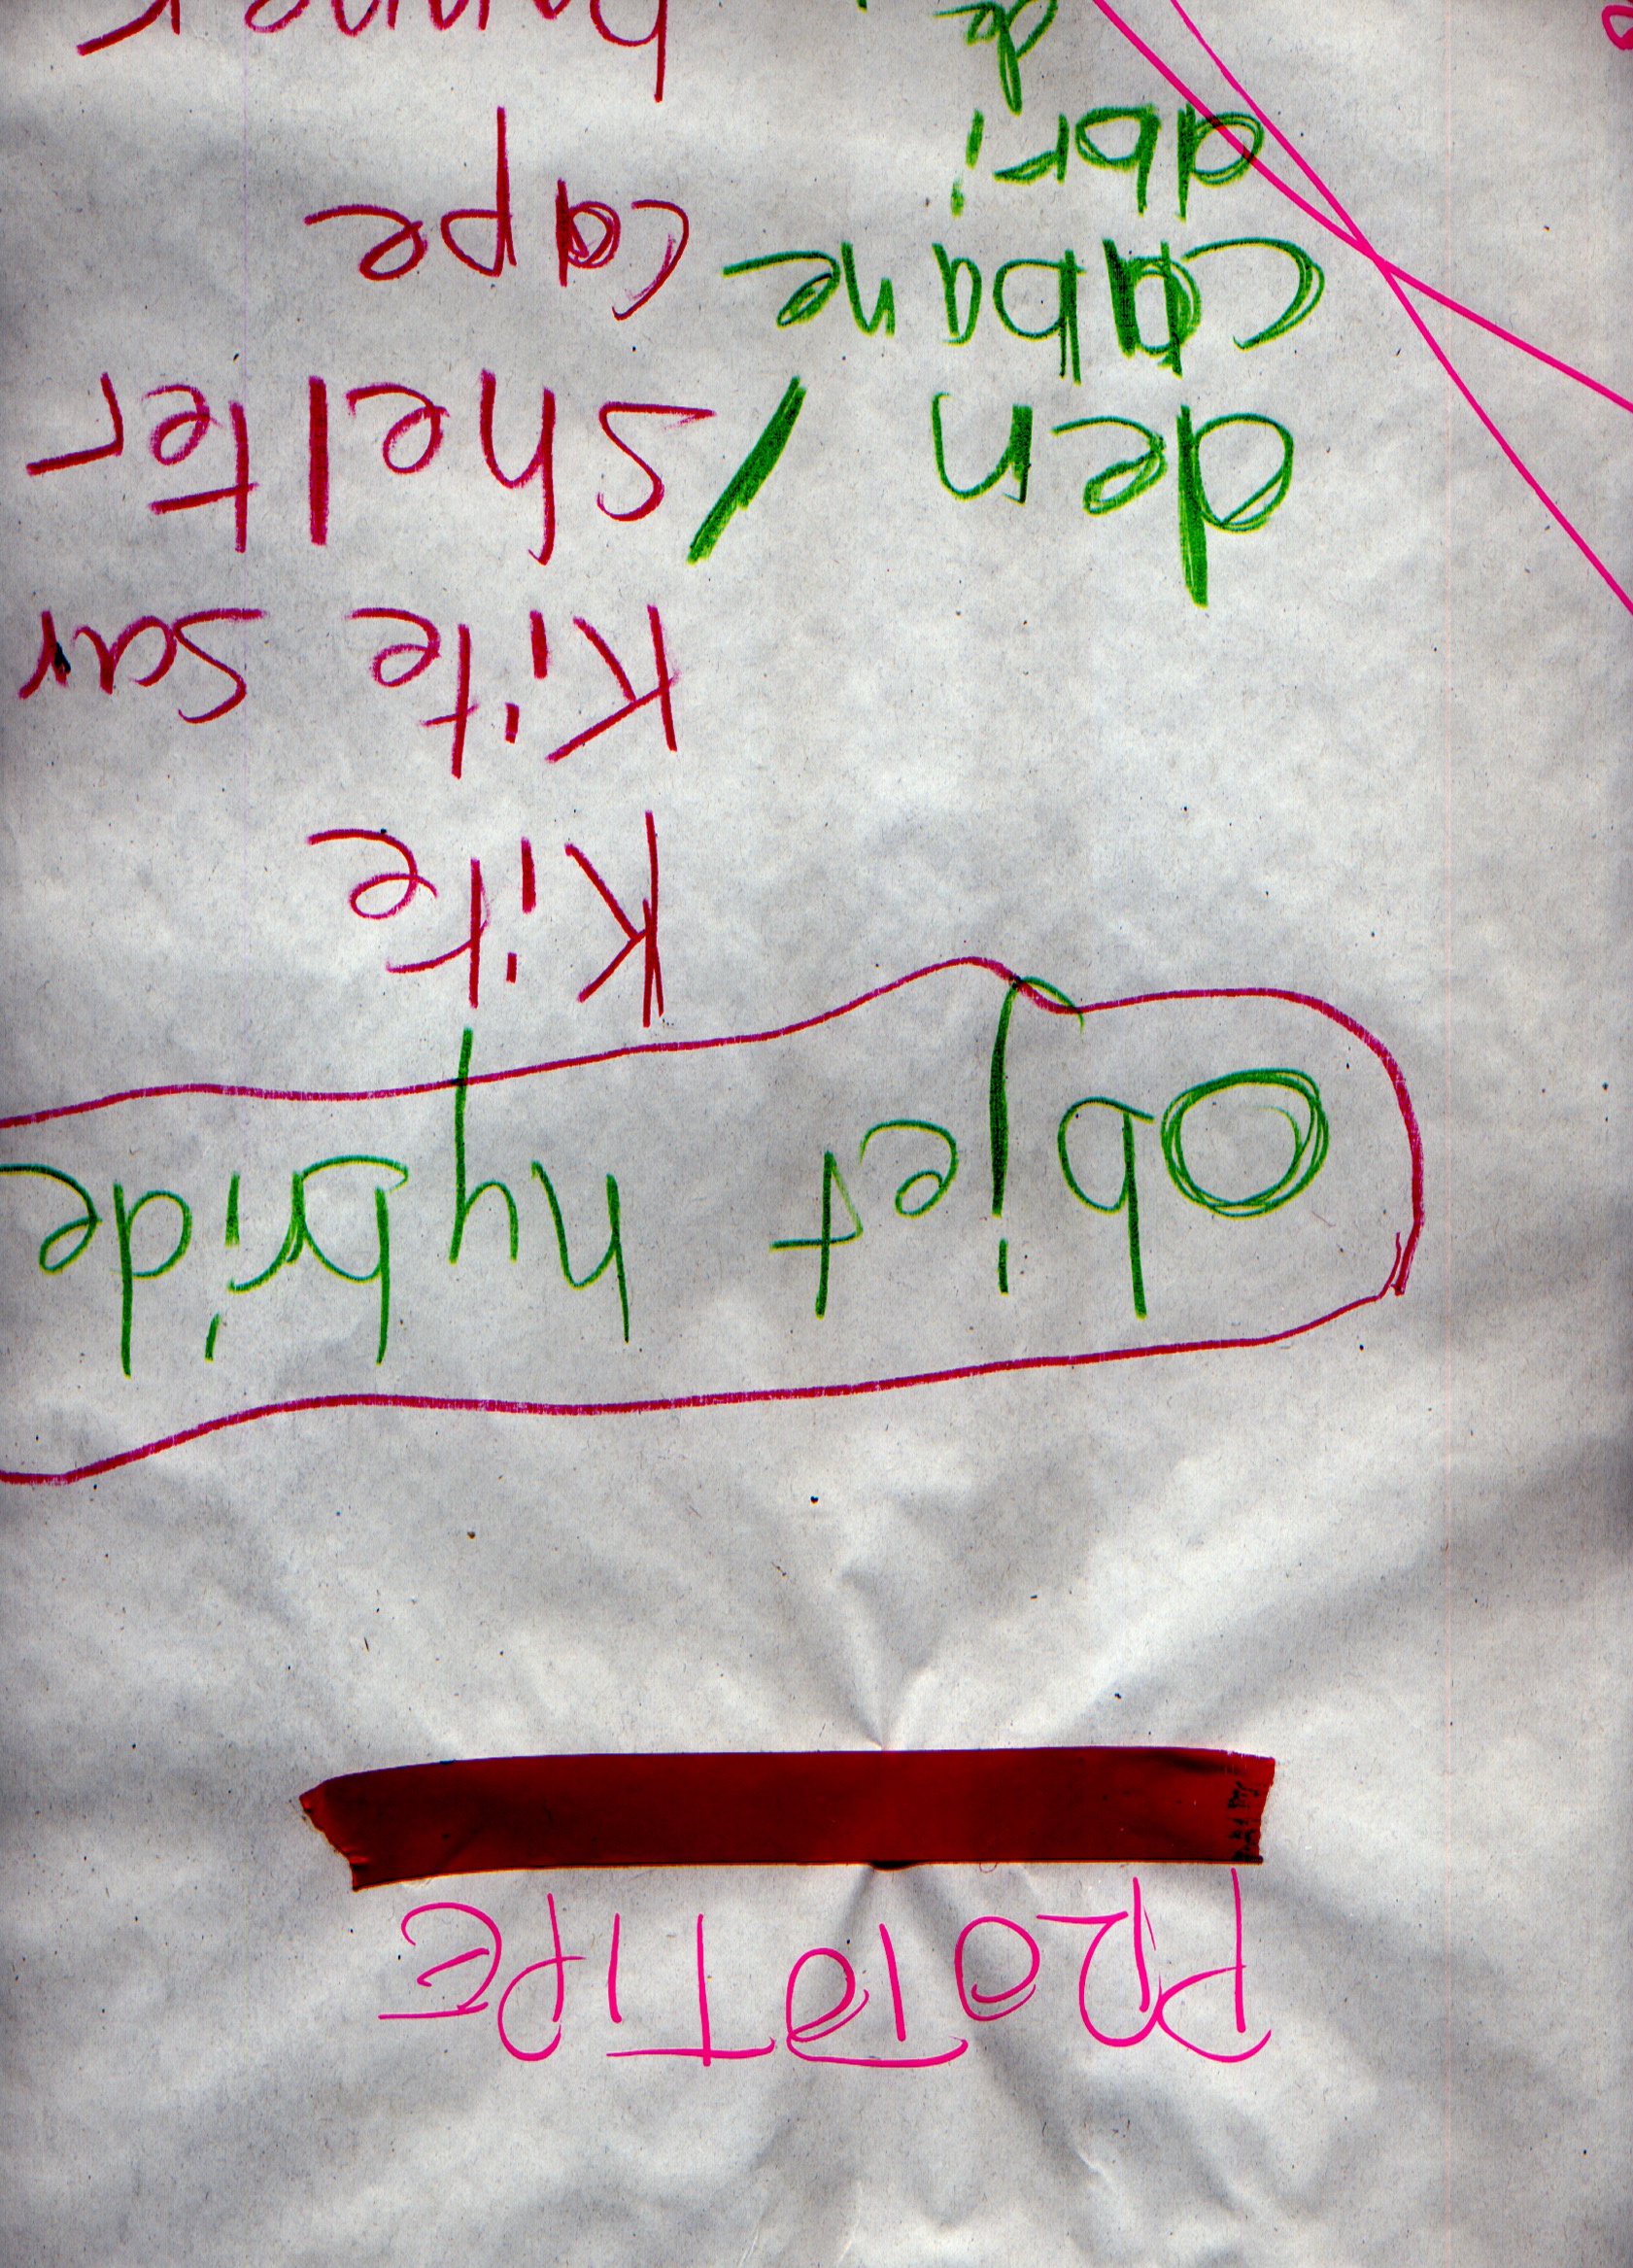 PROTOTIPE
objet hybride
Kite
Kite
den / shelter
cabane
cape
abri
de